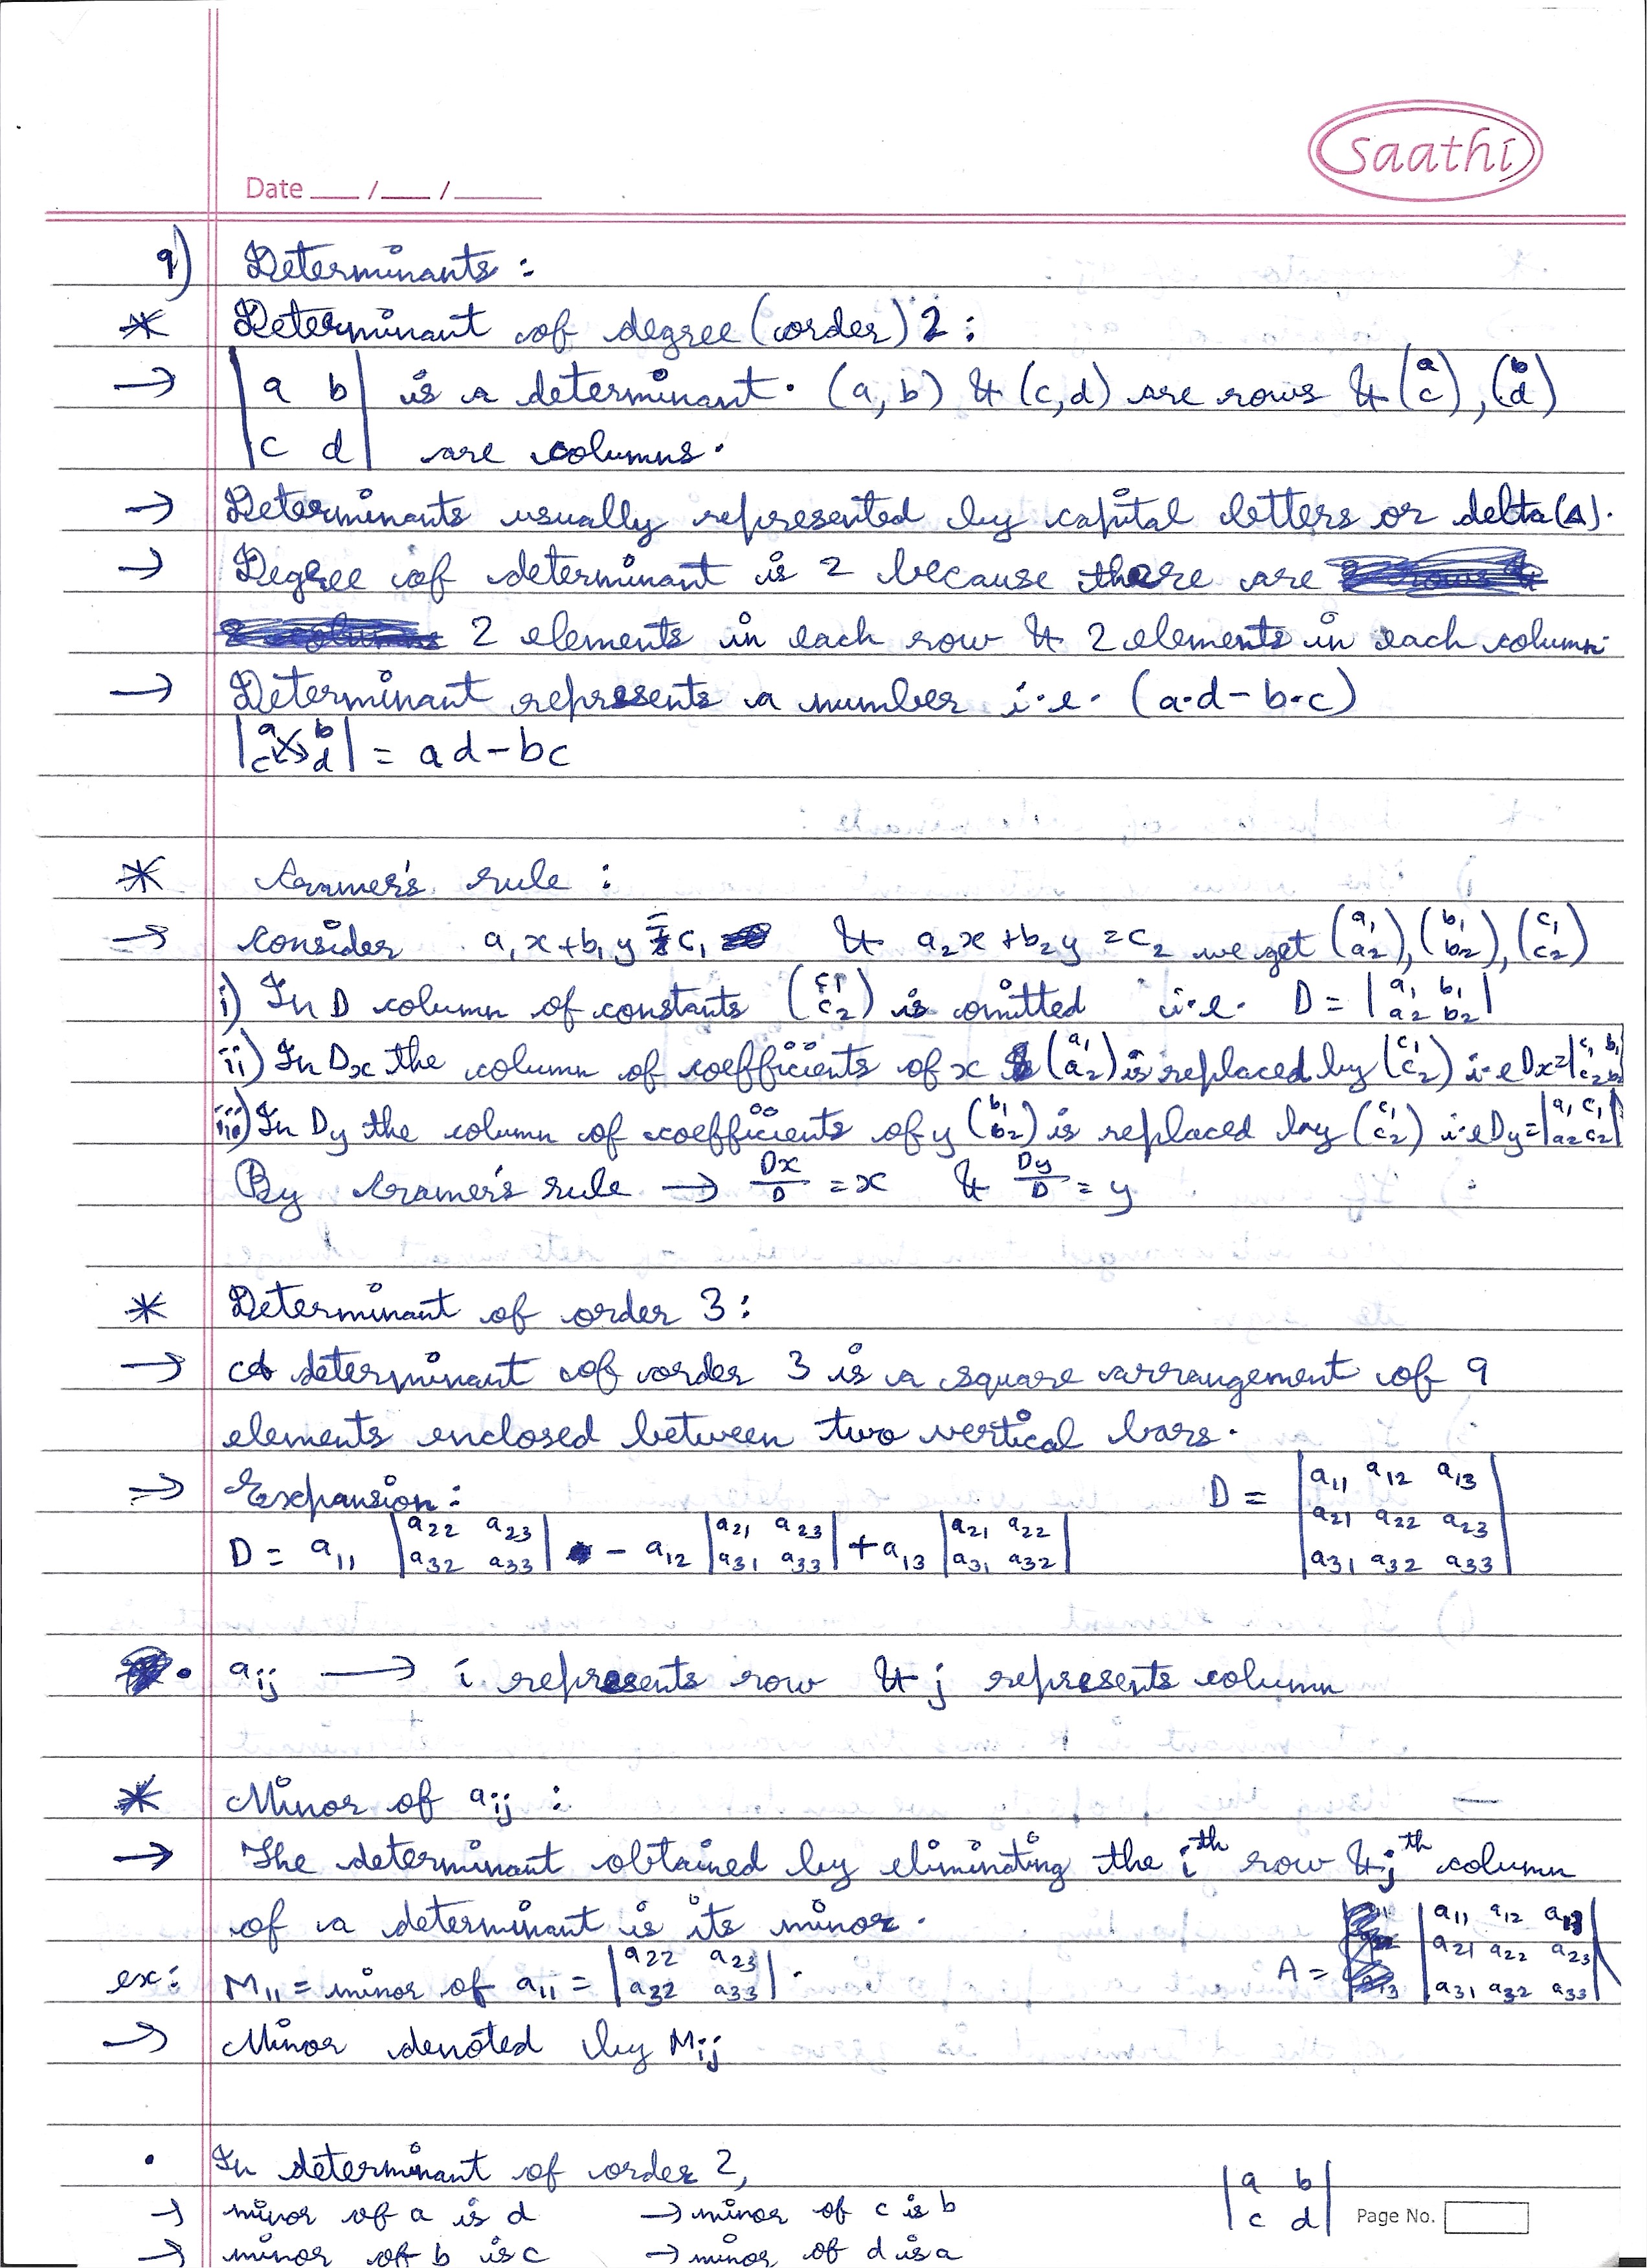 saathi
Date ___/___/_____
9) Determinants :
* Determinant of degree (order) 2 :
→ | a b | is a determinant. (a, b) & (c, d) are rows & (a c), (b d)
| c d | are columns.
→ Determinants usually represented by capital letters or delta (Δ).
→ Degree of determinant is 2 because there are
2 elements in each row & 2 elements in each column.
→ Determinant represents a number i.e. (a·d - b·c)
| a b c d | = ad - bc
* Cramer's rule :
→ consider a₁x + b₁y = c₁ & a₂x + b₂y = c₂ we get (a₁ a₂), (b₁ b₂), (c₁ c₂)
i) In D column of constants (c₁ c₂) is omitted i.e. D = | a₁ b₁ a₂ b₂ |
ii) In Dx the column of coefficients of x (a₁ a₂) is replaced by (c₁ c₂) i.e Dx = | c₁ b₁ c₂ b₂ |
iii) In Dy the column of coefficients of y (b₁ b₂) is replaced by (c₁ c₂) i.e Dy = | a₁ c₁ a₂ c₂ |
By Cramer's rule → Dx/D = x & Dy/D = y
* Determinant of order 3 :
→ A determinant of order 3 is a square arrangement of 9
elements enclosed between two vertical bars.
→ Expansion : D = | a₁₁ a₁₂ a₁₃ a₂₁ a₂₂ a₂₃ a₃₁ a₃₂ a₃₃ |
D = a₁₁ | a₂₂ a₂₃ a₃₂ a₃₃ | - a₁₂ | a₂₁ a₂₃ a₃₁ a₃₃ | + a₁₃ | a₂₁ a₂₂ a₃₁ a₃₂ |
• aij → i represents row & j represents column
* Minor of aij :
→ The determinant obtained by eliminating the iᵗʰ row & jᵗʰ column
of a determinant is its minor.
ex: M₁₁ = minor of a₁₁ = | a₂₂ a₂₃ a₃₂ a₃₃ | . A = | a₁₁ a₁₂ a₁₃ a₂₁ a₂₂ a₂₃ a₃₁ a₃₂ a₃₃ |
→ Minor denoted by Mij
• In determinant of order 2, | a b c d |
→ minor of a is d → minor of c is b
→ minor of b is c → minor of d is a
Page No.